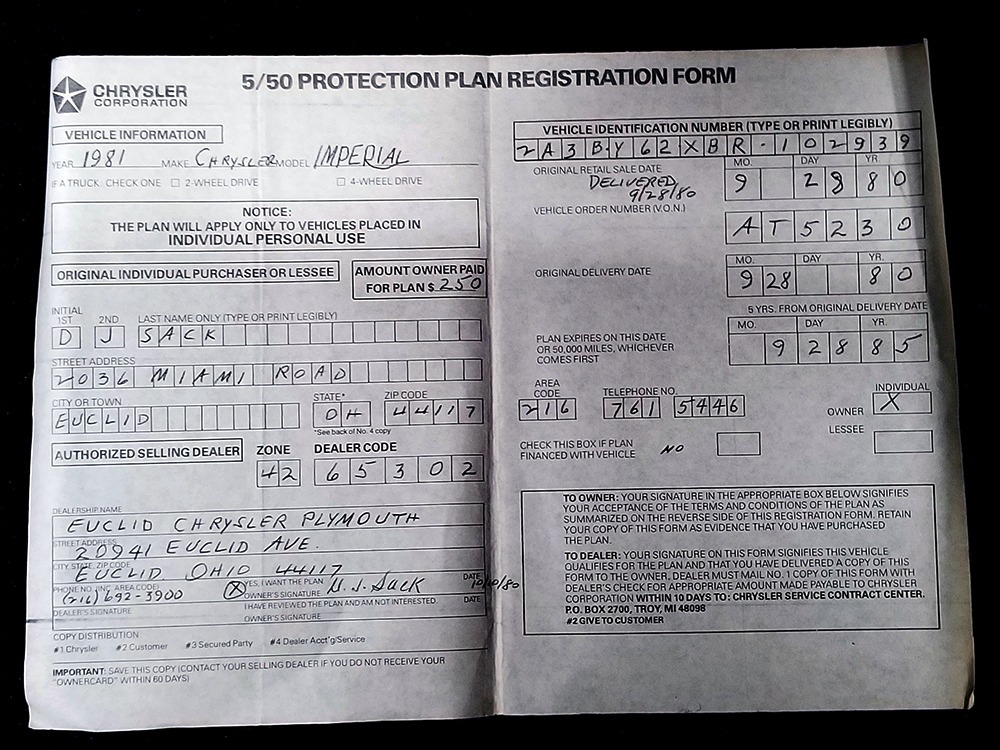 CHRYSLER
CORPORATION
5/50 PROTECTION PLAN REGISTRATION FORM
VEHICLE INFORMATION
YEAR 1981 MAKE CHRYSLER MODEL IMPERIAL
IF A TRUCK: CHECK ONE ☐ 2-WHEEL DRIVE ☐ 4-WHEEL DRIVE
NOTICE:
THE PLAN WILL APPLY ONLY TO VEHICLES PLACED IN
INDIVIDUAL PERSONAL USE
ORIGINAL INDIVIDUAL PURCHASER OR LESSEE
AMOUNT OWNER PAID
FOR PLAN $ 250
INITIAL
1ST 2ND LAST NAME ONLY (TYPE OR PRINT LEGIBLY)
D J SACK
STREET ADDRESS
2036 MIAMI ROAD
CITY OR TOWN STATE* ZIP CODE
EUCLID OH 44117
*See back of No. 4 copy
AUTHORIZED SELLING DEALER ZONE DEALER CODE
42 65302
DEALERSHIP NAME
EUCLID CHRYSLER PLYMOUTH
STREET ADDRESS
20941 EUCLID AVE.
CITY, STATE, ZIP CODE
EUCLID OHIO 44117
PHONE NO. (INC. AREA CODE) YES, I WANT THE PLAN DATE
(216) 692-3900 OWNER'S SIGNATURE D. J. Sack 10/10/80
I HAVE REVIEWED THE PLAN AND AM NOT INTERESTED. DATE
DEALER'S SIGNATURE OWNER'S SIGNATURE
COPY DISTRIBUTION
#1 Chrysler #2 Customer #3 Secured Party #4 Dealer Acct'g/Service
IMPORTANT: SAVE THIS COPY (CONTACT YOUR SELLING DEALER IF YOU DO NOT RECEIVE YOUR
"OWNERCARD" WITHIN 60 DAYS)
VEHICLE IDENTIFICATION NUMBER (TYPE OR PRINT LEGIBLY)
2A3BY62XBR-102939
ORIGINAL RETAIL SALE DATE MO. DAY YR.
DELIVERED 9 28 80
9/28/80
VEHICLE ORDER NUMBER (V.O.N.)
AT5230
ORIGINAL DELIVERY DATE MO. DAY YR.
9 28 80
5 YRS. FROM ORIGINAL DELIVERY DATE
MO. DAY YR.
PLAN EXPIRES ON THIS DATE
OR 50,000 MILES, WHICHEVER
COMES FIRST
9 28 85
AREA
CODE TELEPHONE NO. INDIVIDUAL
216 761 5446 OWNER X
LESSEE
CHECK THIS BOX IF PLAN
FINANCED WITH VEHICLE NO
TO OWNER: YOUR SIGNATURE IN THE APPROPRIATE BOX BELOW SIGNIFIES
YOUR ACCEPTANCE OF THE TERMS AND CONDITIONS OF THE PLAN AS
SUMMARIZED ON THE REVERSE SIDE OF THIS REGISTRATION FORM. RETAIN
YOUR COPY OF THIS FORM AS EVIDENCE THAT YOU HAVE PURCHASED
THE PLAN.
TO DEALER: YOUR SIGNATURE ON THIS FORM SIGNIFIES THIS VEHICLE
QUALIFIES FOR THE PLAN AND THAT YOU HAVE DELIVERED A COPY OF
THIS FORM TO THE OWNER. DEALER MUST MAIL NO. 1 COPY OF THIS FORM WITH
DEALER'S CHECK FOR APPROPRIATE AMOUNT MADE PAYABLE TO CHRYSLER
CORPORATION WITHIN 10 DAYS TO: CHRYSLER SERVICE CONTRACT CENTER.
P.O. BOX 2700, TROY, MI 48098
#2 GIVE TO CUSTOMER